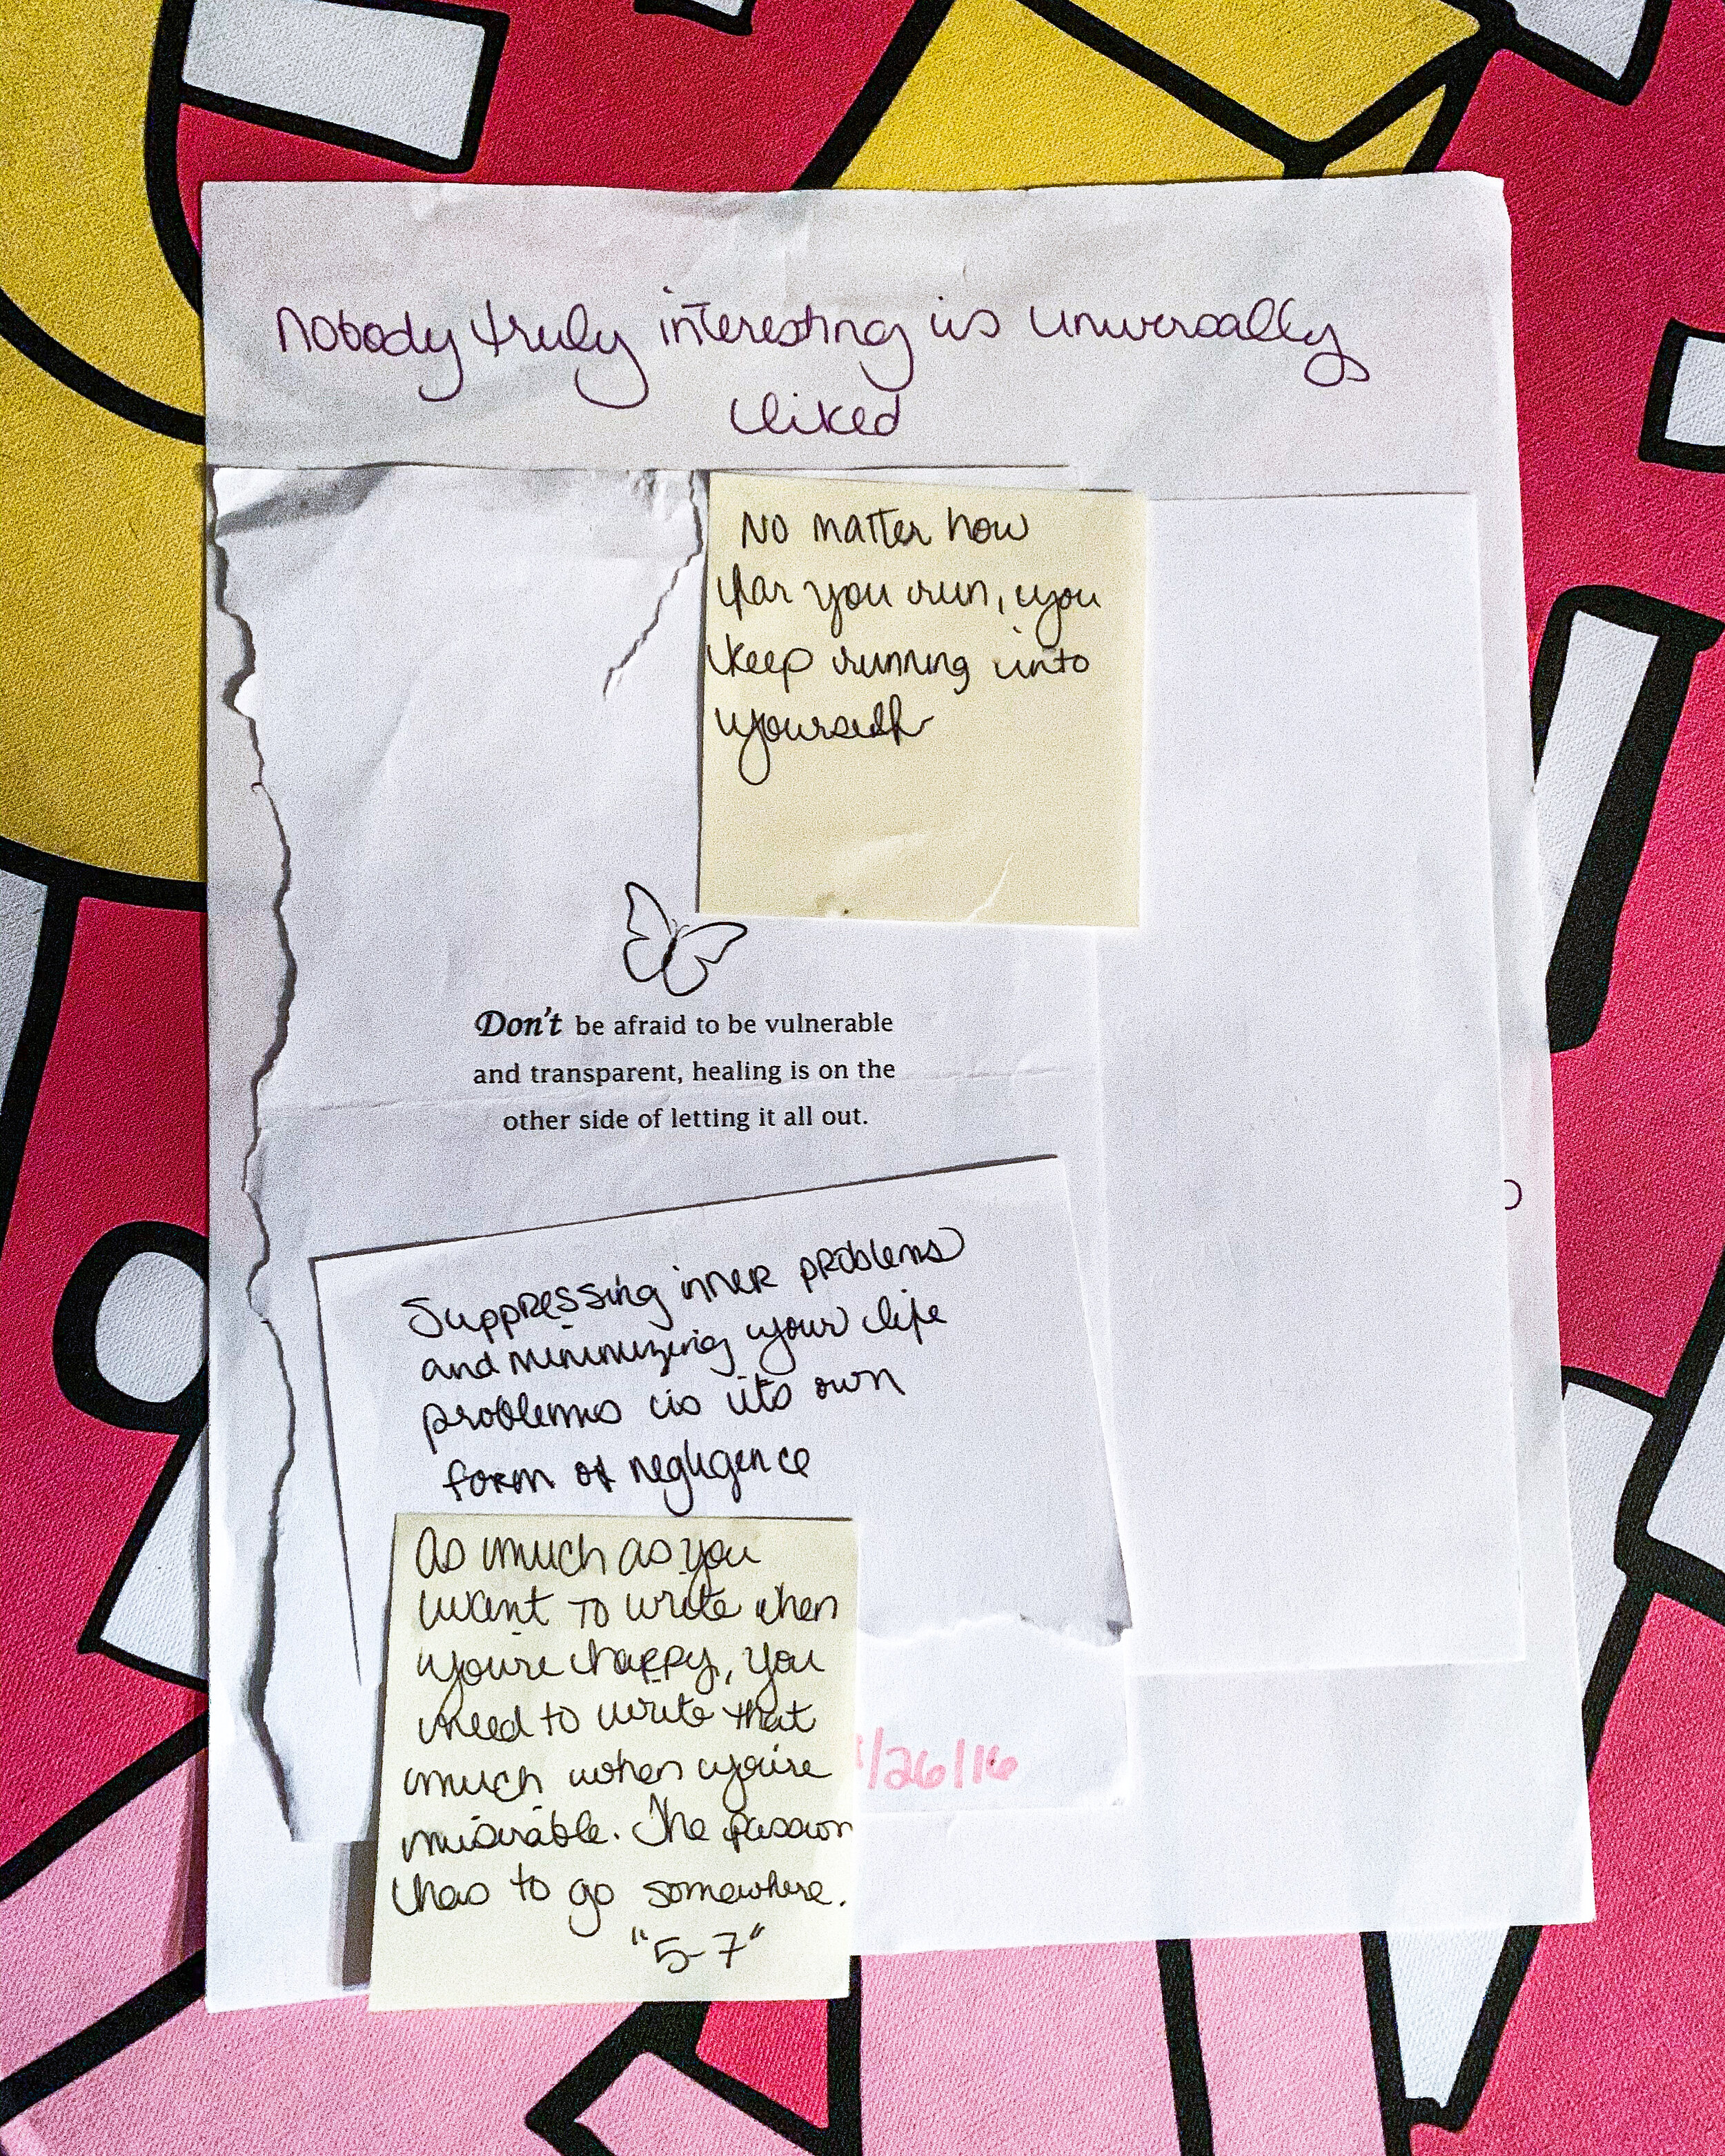 Nobody truly interesting is universally
liked
No matter how
far you run, you
keep running into
yourself
Don't be afraid to be vulnerable
and transparent, healing is on the
other side of letting it all out.
Suppressing inner problems
and minimizing your life
problems is its own
form of negligence
/26/16
As much as you
want to write when
you're happy, you
need to write that
much when you're
miserable. The passion
has to go somewhere.
"5-7"